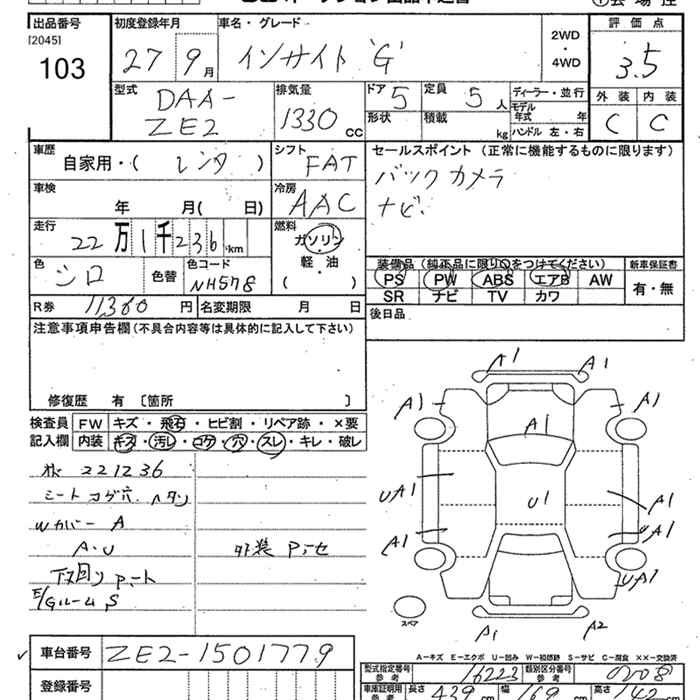 出品番号 初度登録年月 車名・グレード 評価点
[2045]
103 27 9月 インサイト 'G' 2WD・4WD 3.5
型式 DAA-ZE2 排気量 1330 cc ドア 5 定員 5人 ディーラー・並行
形状 積載 kg モデル年式 年 ハンドル 左・右 外装 内装
C C
車歴 自家用・( レンタ ) シフト FAT セールスポイント (正常に機能するものに限ります)
車検 年 月( 日) 冷房 AAC バックカメラ
ナビ
走行 22万1千236km 燃料 ガソリン
軽・油
( )
色 シロ 色替 色コード NH578
装備品 (純正品に限り○をつけてください) 新車保証書
PS PW ABS エアB AW 有・無
SR ナビ TV カワ
R券 11,360 円 名変期限 月 日 後日品
注意事項申告欄(不具合内容等は具体的に記入して下さい)
修復歴 有 〔箇所 〕
検査員 FW キズ・飛石・ヒビ割・リペア跡・×要
記入欄 内装 キズ・汚レ・コゲ・穴・スレ・キレ・破レ
221236
シートコゲ穴 ヘタリ
Wカバー A
A・U 外装 Pモセ
下回り Pート
E/Gルーム S
A1 A1
A1 A1
A1
UA1 U1 A1
A1 UA1
UA1
スペア
A1 A2
A-キズ E-エクボ U-凹み W-補修跡 S-サビ C-腐食 ××-交換済
車台番号 ZE2-1501779
型式指定番号 参考 16223 類別区分番号 参考 0208
登録番号 車庫証明用 参考 長さ 439 cm 幅 169 cm 高さ 142 cm